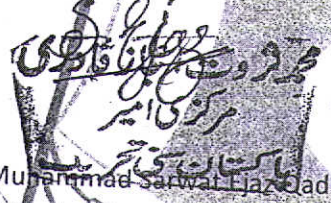 محمد ثروت اعجاز قادری
مرکزی امیر
پاکستان سنی تحریک
Muhammad Sarwat Ejaz Qad